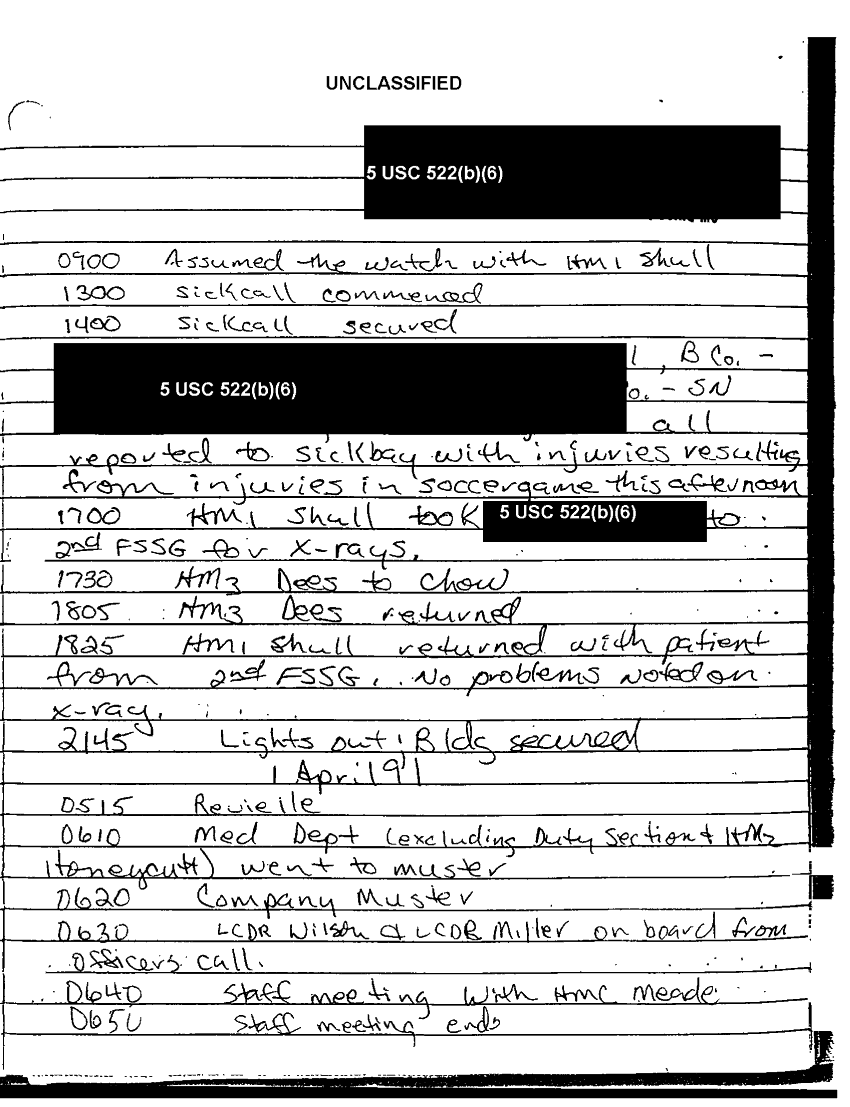 UNCLASSIFIED
5 USC 522(b)(6)
0900 Assumed the watch with HM1 Shull
1300 Sickcall commenced
1400 Sickcall secured
, B Co. -
5 USC 522(b)(6) o. - SN
all
reported to sickbay with injuries resulting
from injuries in soccergame this afternoon
1700 HM1 Shull took 5 USC 522(b)(6) to
2nd FSSG for X-rays.
1730 HM3 Dees to chow
1805 HM3 Dees returned
1825 HM1 Shull returned with patient
from 2nd FSSG. No problems noted on
x-ray.
2145 Lights out, Bldg secured
1 April 91
0515 Revieile
0610 Med Dept (excluding Duty Section & HM2
Honeycutt) went to muster
0620 Company Muster
0630 LCDR Wilson & LCDR Miller on board from
officers call.
0640 Staff meeting with HMC Meade
0650 Staff meeting ends